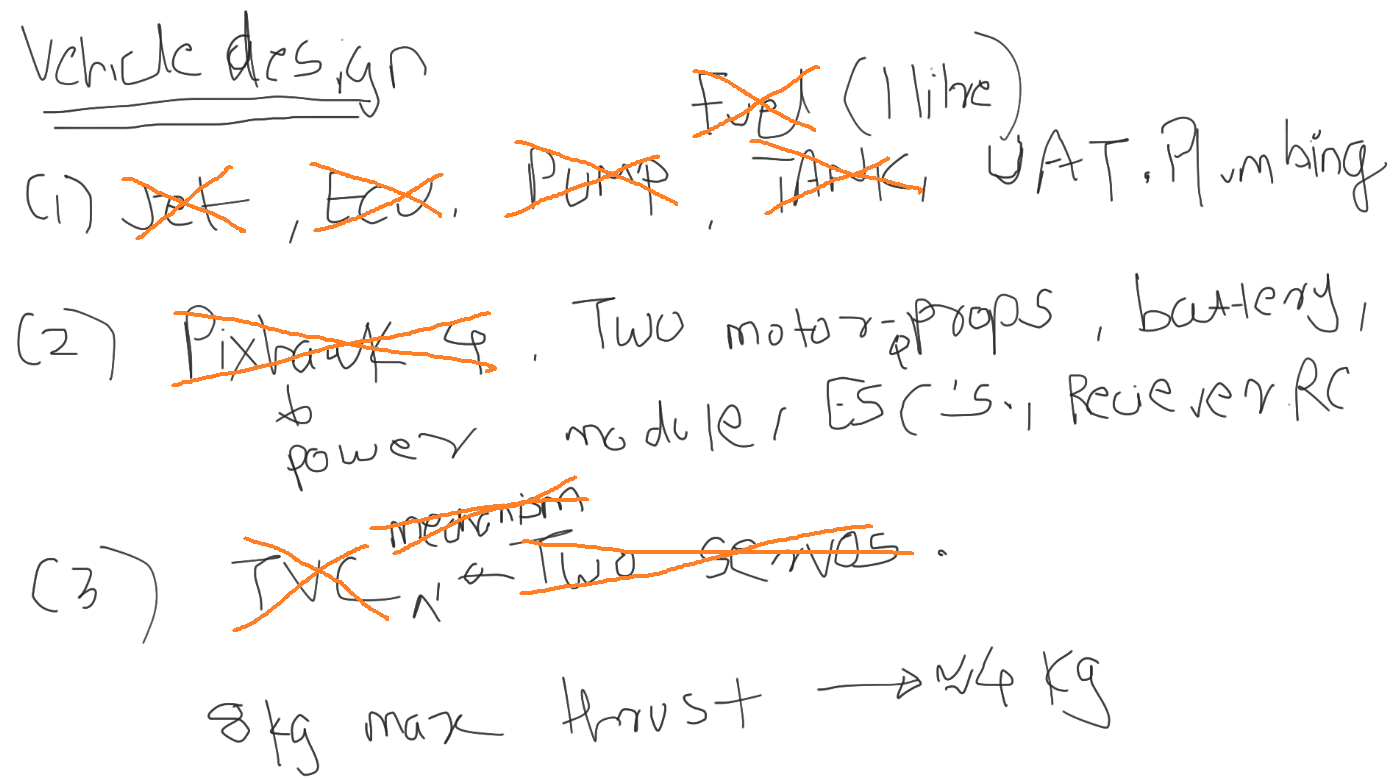 Vehicle design
Fuel (1 litre)
(1) Jet, ECU, Pump, TANK, UAT. Plumbing
(2) Pixhawk 4, Two motor-props, battery,
power module, ESC's., Reciever RC
mechanism
(3) TVC ← Two servos.
8kg max thrust → ≈4 kg